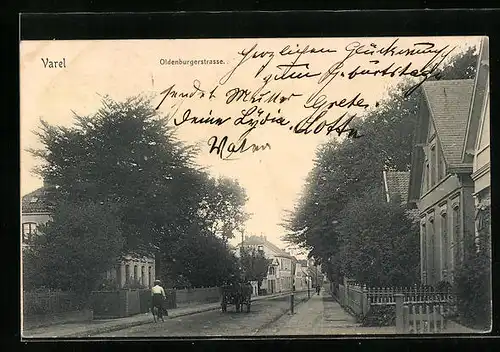 Varel
Oldenburgerstrasse.
Herzlichen Glückwunsch
zum Geburtstag
sendet Grete,
deine Lydia. Lotte
Vater